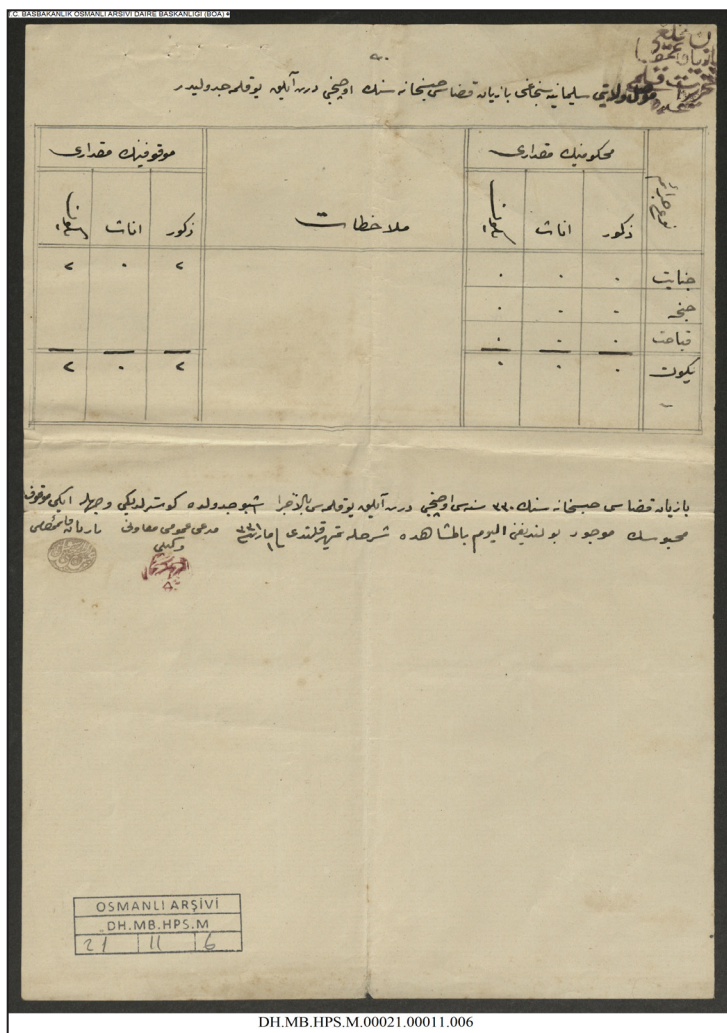 T.C. BAŞBAKANLIK OSMANLI ARŞİVİ DAİRE BAŞKANLIĞI (BOA)
موصل ولايتى سليمانيه سنجاغى بازيان قضاسى حبسخانه سنك اوچنجى درت آيلق يوقلمه جدوليدر
نوع جرائم
محكومينك مقدارى
ملاحظات
موقوفينك مقدارى
ذكور اناث يكون
ذكور اناث يكون
جنايت ٠ ٠ ٠ ٢ ٠ ٢
جنحه ٠ ٠ ٠
قباحت ٠ ٠ ٠
يكون ٠ ٠ ٠ ٢ ٠ ٢
بازيان قضاسى حبسخانه سنك ٣٣٠ سنه سى اوچنجى درت آيلق يوقلمه سى بالاجرا اشبو جدولده كوسترلديكى وجهله ايكى موقوف
محبوسك موجود بولنديغى اليوم بالمشاهده شرحله تمهير قلندى ١ مارت ٣٣١ مدعى عمومى معاونى
وكيلى
OSMANLI ARŞİVİ
DH.MB.HPS.M
21 11 6
DH.MB.HPS.M.00021.00011.006